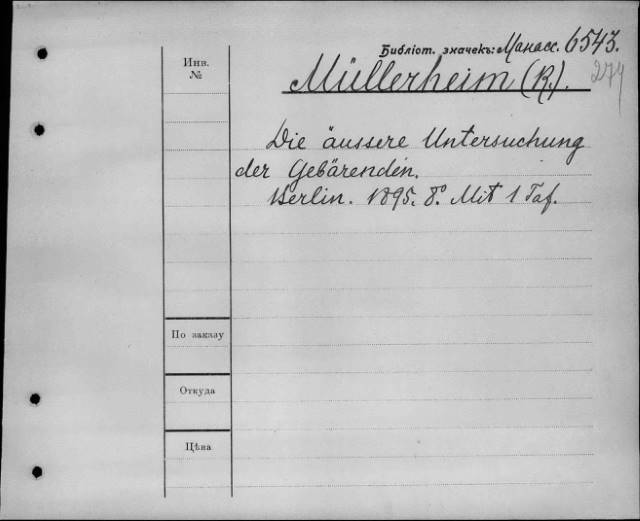 Библіот. значекъ: Манасс. 6543.
274
Инв.
№
Müllerheim (R.).
Die äussere Untersuchung
der Gebärenden.
Berlin. 1895. 8° Mit 1 Taf.
По заказу
Откуда
Цѣна